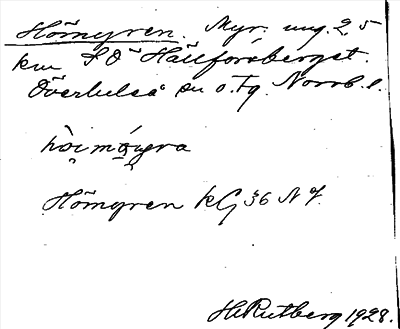 Hömyren. Myr. ung. 2,5
km SÖ Hällforsberget.
Överluleå sn o. Fg. Norrb. l.
Hömyren kG 36 N 7.
H. Rutberg 1928.